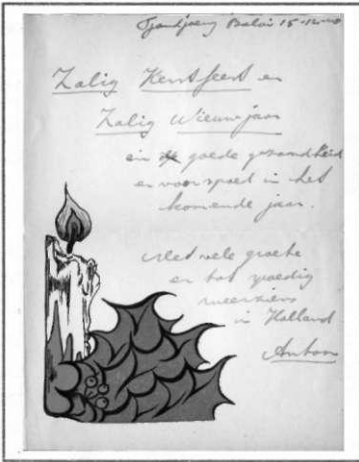 Tandjoeng Balai 15-12-48
Zalig Kerstfeest en
Zalig Nieuwjaar
en de goede gezondheid
en voorspoed in het
komende jaar.
Met vele groeten
en tot spoedig
weerziens
in Holland
Anton